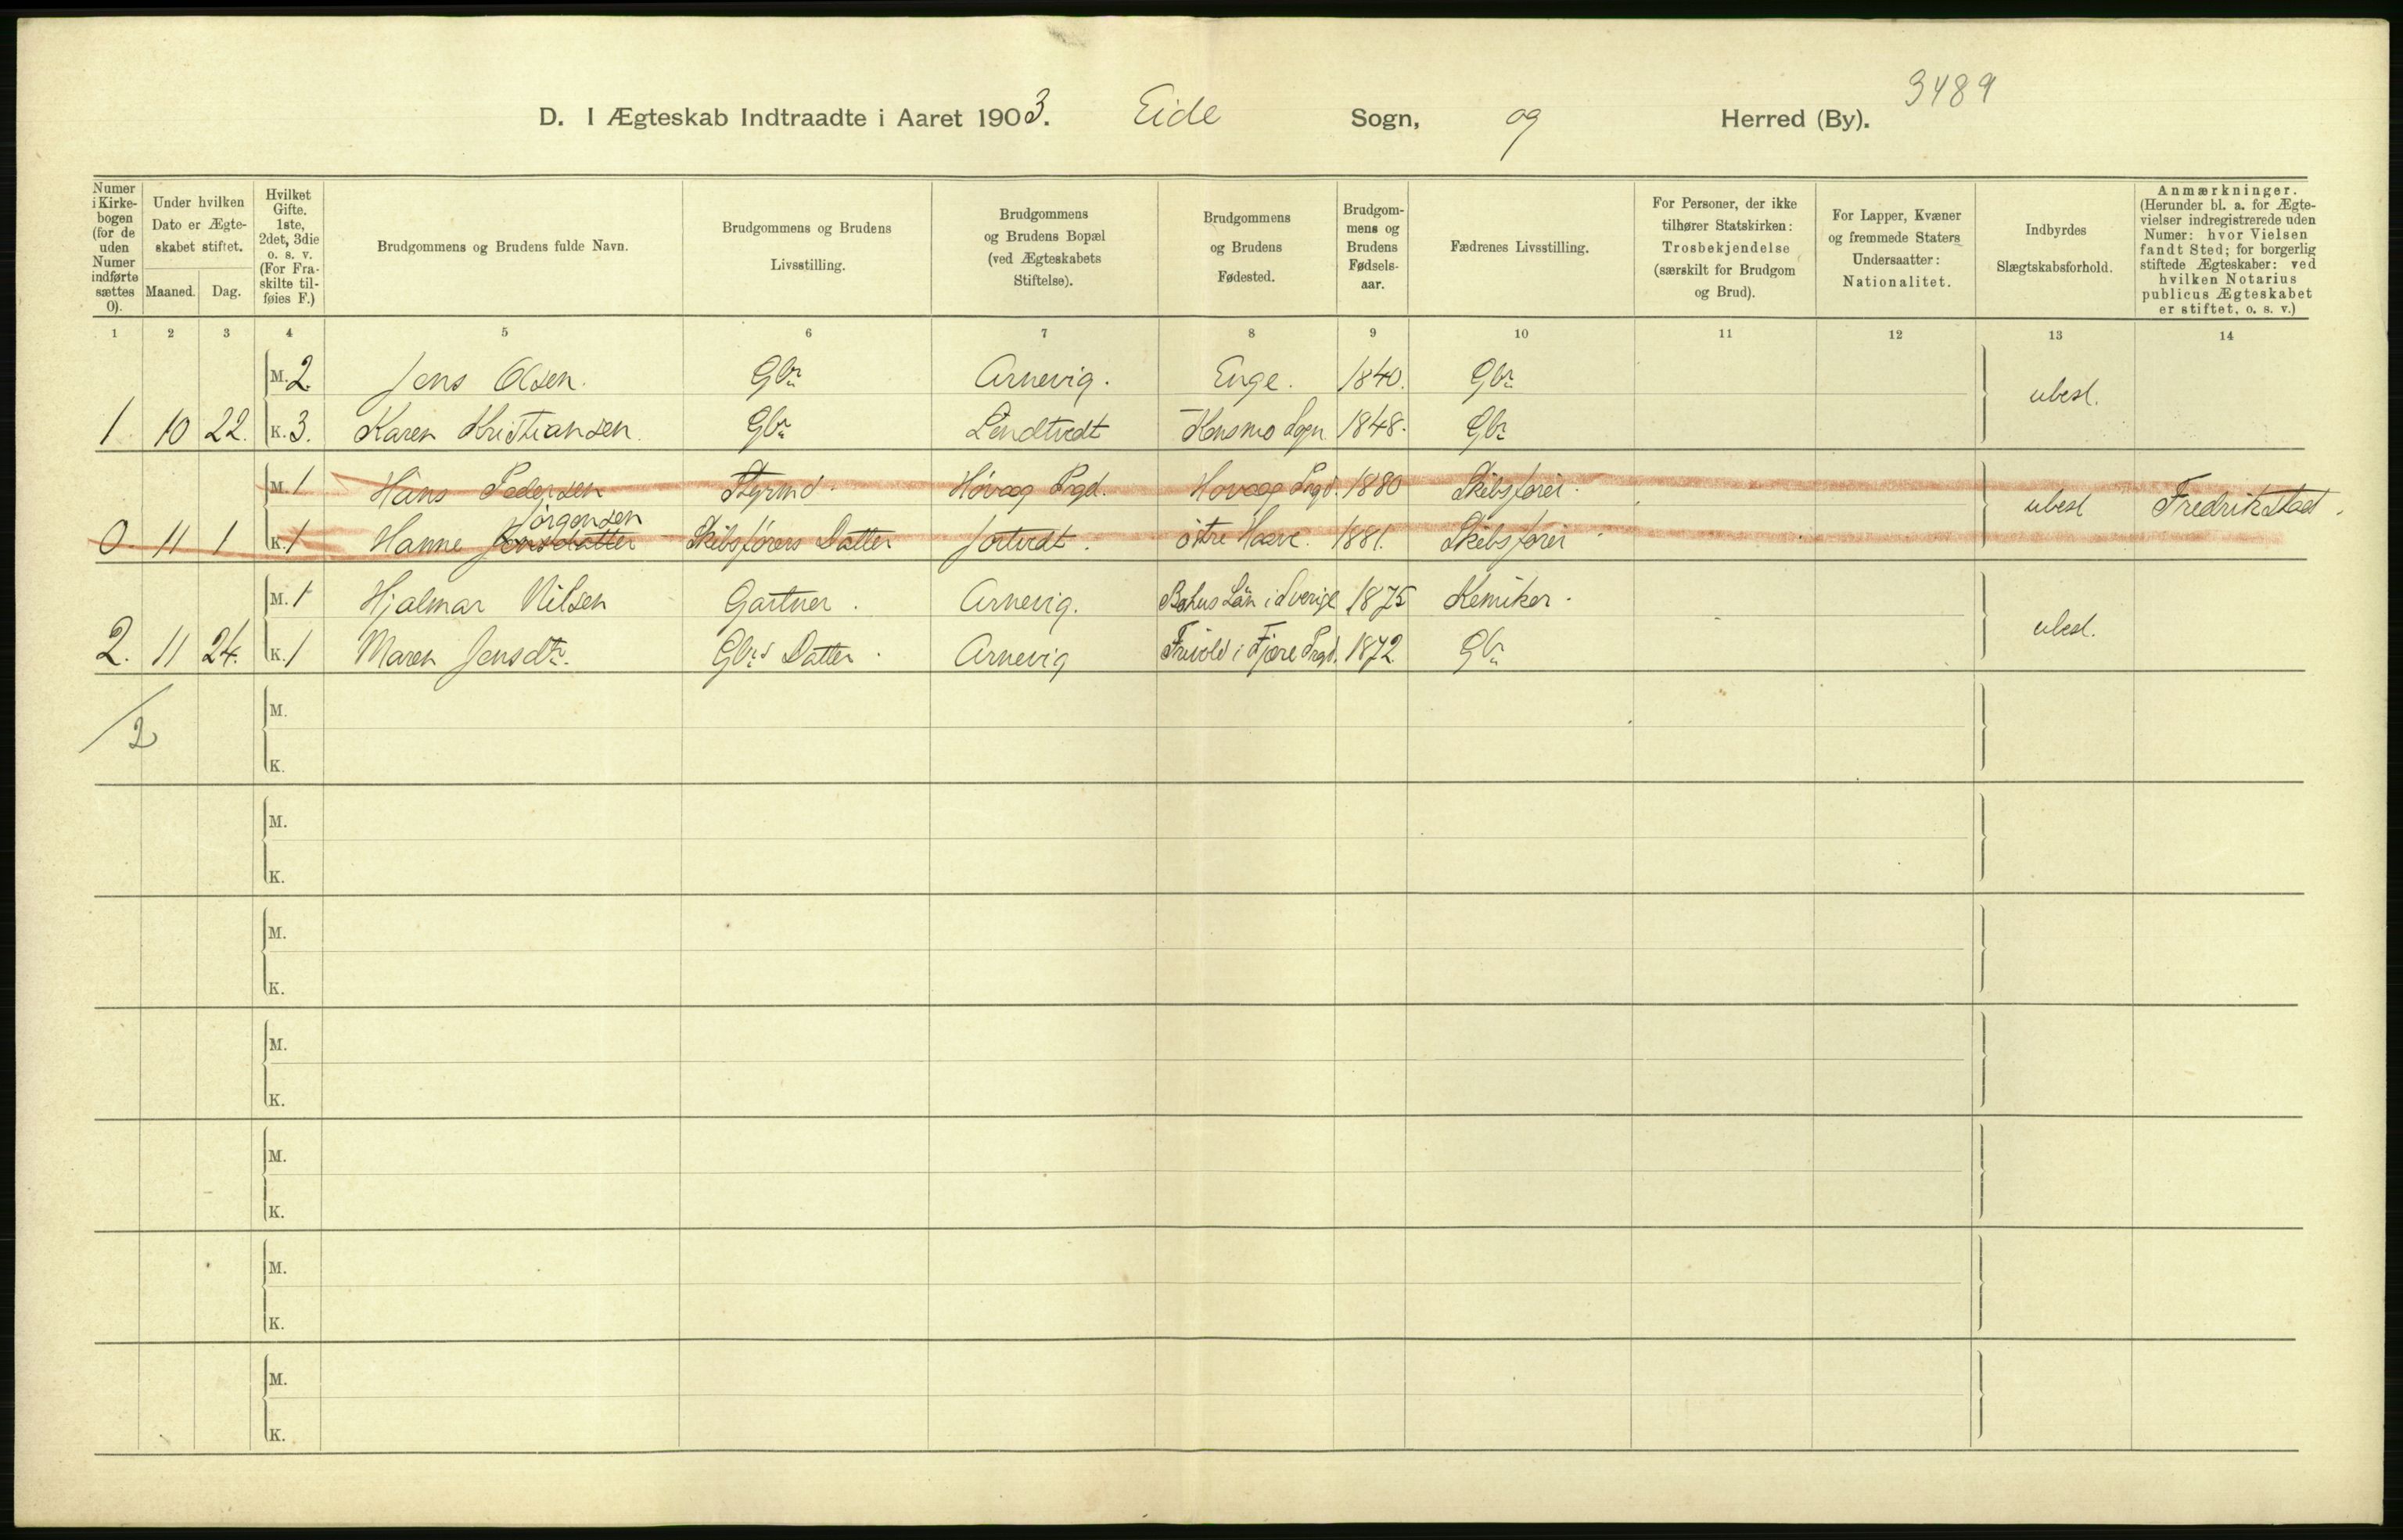 3489
D. I Ægteskab Indtraadte i Aaret 1903. Eide Sogn, og Herred (By).
Numer i Kirkebogen (for de uden Numer indførte sættes 0).
Under hvilken Dato er Ægteskabet stiftet.
Maaned. Dag.
Hvilket Gifte. 1ste, 2det, 3die o. s. v. (For Fraskilte tilføies F.)
Brudgommens og Brudens fulde Navn.
Brudgommens og Brudens Livsstilling.
Brudgommens og Brudens Bopæl (ved Ægteskabets Stiftelse).
Brudgommens og Brudens Fødested.
Brudgommens og Brudens Fødselsaar.
Fædrenes Livsstilling.
For Personer, der ikke tilhører Statskirken: Trosbekjendelse (særskilt for Brudgom og Brud).
For Lapper, Kvæner og fremmede Staters Undersaatter: Nationalitet.
Indbyrdes Slægtskabsforhold.
Anmærkninger. (Herunder bl. a. for Ægtevielser indregistrerede uden Numer: hvor Vielsen fandt Sted; for borgerlig stiftede Ægteskaber: ved hvilken Notarius publicus Ægteskabet er stiftet, o. s. v.)
1 2 3 4 5 6 7 8 9 10 11 12 13 14
M. 2. Jens Olsen. Gbr Arnevig. Enge. 1840. Gbr ubesl.
1 10 22. K. 3. Karen Kristiansen. Gbr Lendtvedt Sogn 1848. Gbr
M. 1 Hans Pedersen Styrmd. Høvaag Prgd. Høvaag Prgd. 1880 Skibsfører. ubesl Fredrikstad.
Jørgensen
0. 11 1 K. 1 Hanne Jensdatter Skibsførers Datter Jortvedt. østre Haave. 1881. Skibsfører
M. 1 Hjalmar Nilsen Gartner. Arnevig. Bohus Län i Sverige 1875 Kemiker. ubesl.
2. 11 24. K. 1 Maren Jensdtr. Gbrs Datter. Arnevig Frivold i Fjære Prgd. 1872 Gbr
M.
2
K.
M.
K.
M.
K.
M.
K.
M.
K.
M.
K.
M.
K.